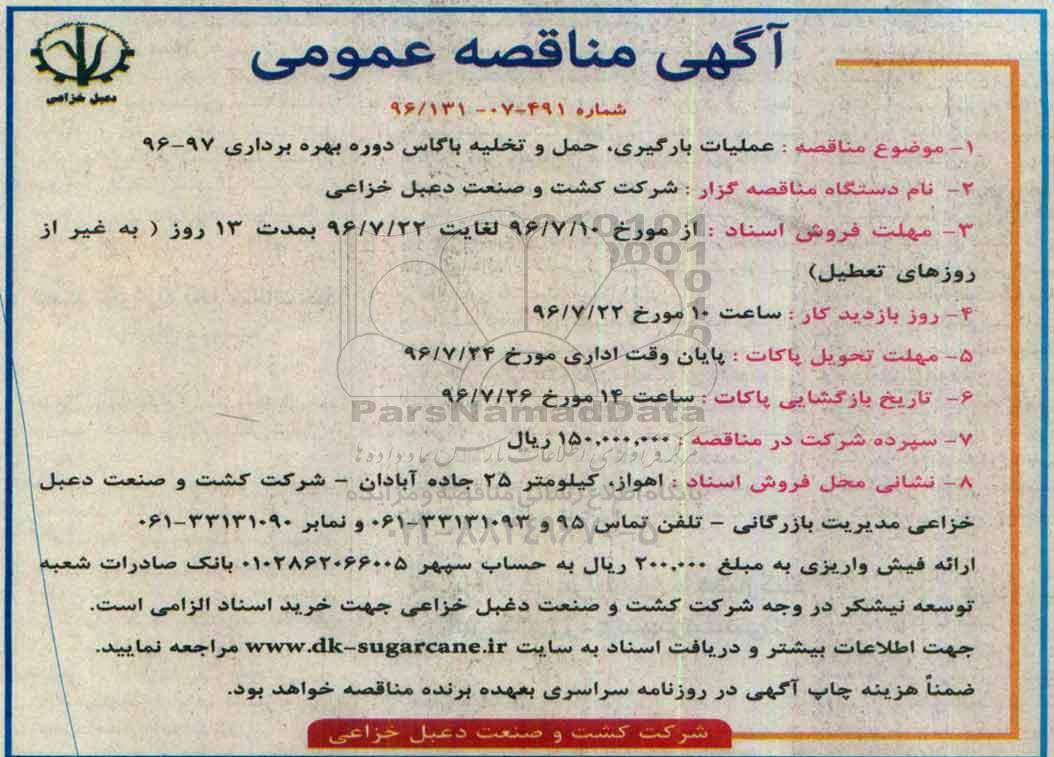 آگهی مناقصه عمومی
دعبل خزاعی
شماره ۴۹۱-۰۷-۹۶/۱۳۱
۱- موضوع مناقصه : عملیات بارگیری، حمل و تخلیه باگاس دوره بهره برداری ۹۷-۹۶
۲- نام دستگاه مناقصه گزار : شرکت کشت و صنعت دعبل خزاعی
۳- مهلت فروش اسناد : از مورخ ۹۶/۷/۱۰ لغایت ۹۶/۷/۲۲ بمدت ۱۳ روز ( به غیر از
روزهای تعطیل)
۴- روز بازدید کار : ساعت ۱۰ مورخ ۹۶/۷/۲۲
۵- مهلت تحویل پاکات : پایان وقت اداری مورخ ۹۶/۷/۲۴
۶- تاریخ بازگشایی پاکات : ساعت ۱۴ مورخ ۹۶/۷/۲۶
ParsNamadData
۷- سپرده شرکت در مناقصه : ۱۵۰,۰۰۰,۰۰۰ ریال
۸- نشانی محل فروش اسناد : اهواز، کیلومتر ۲۵ جاده آبادان - شرکت کشت و صنعت دعبل
پایگاه اطلاع رسانی مناقصه و مزایده
خزاعی مدیریت بازرگانی - تلفن تماس ۹۵ و ۳۳۱۳۱۰۹۳-۰۶۱ و نمابر ۳۳۱۳۱۰۹۰-۰۶۱
ارائه فیش واریزی به مبلغ ۲۰۰,۰۰۰ ریال به حساب سپهر ۰۱۰۲۸۶۲۰۶۶۰۰۵ بانک صادرات شعبه
توسعه نیشکر در وجه شرکت کشت و صنعت دغبل خزاعی جهت خرید اسناد الزامی است.
جهت اطلاعات بیشتر و دریافت اسناد به سایت www.dk-sugarcane.ir مراجعه نمایید.
ضمناً هزینه چاپ آگهی در روزنامه سراسری بعهده برنده مناقصه خواهد بود.
شرکت کشت و صنعت دعبل خزاعی